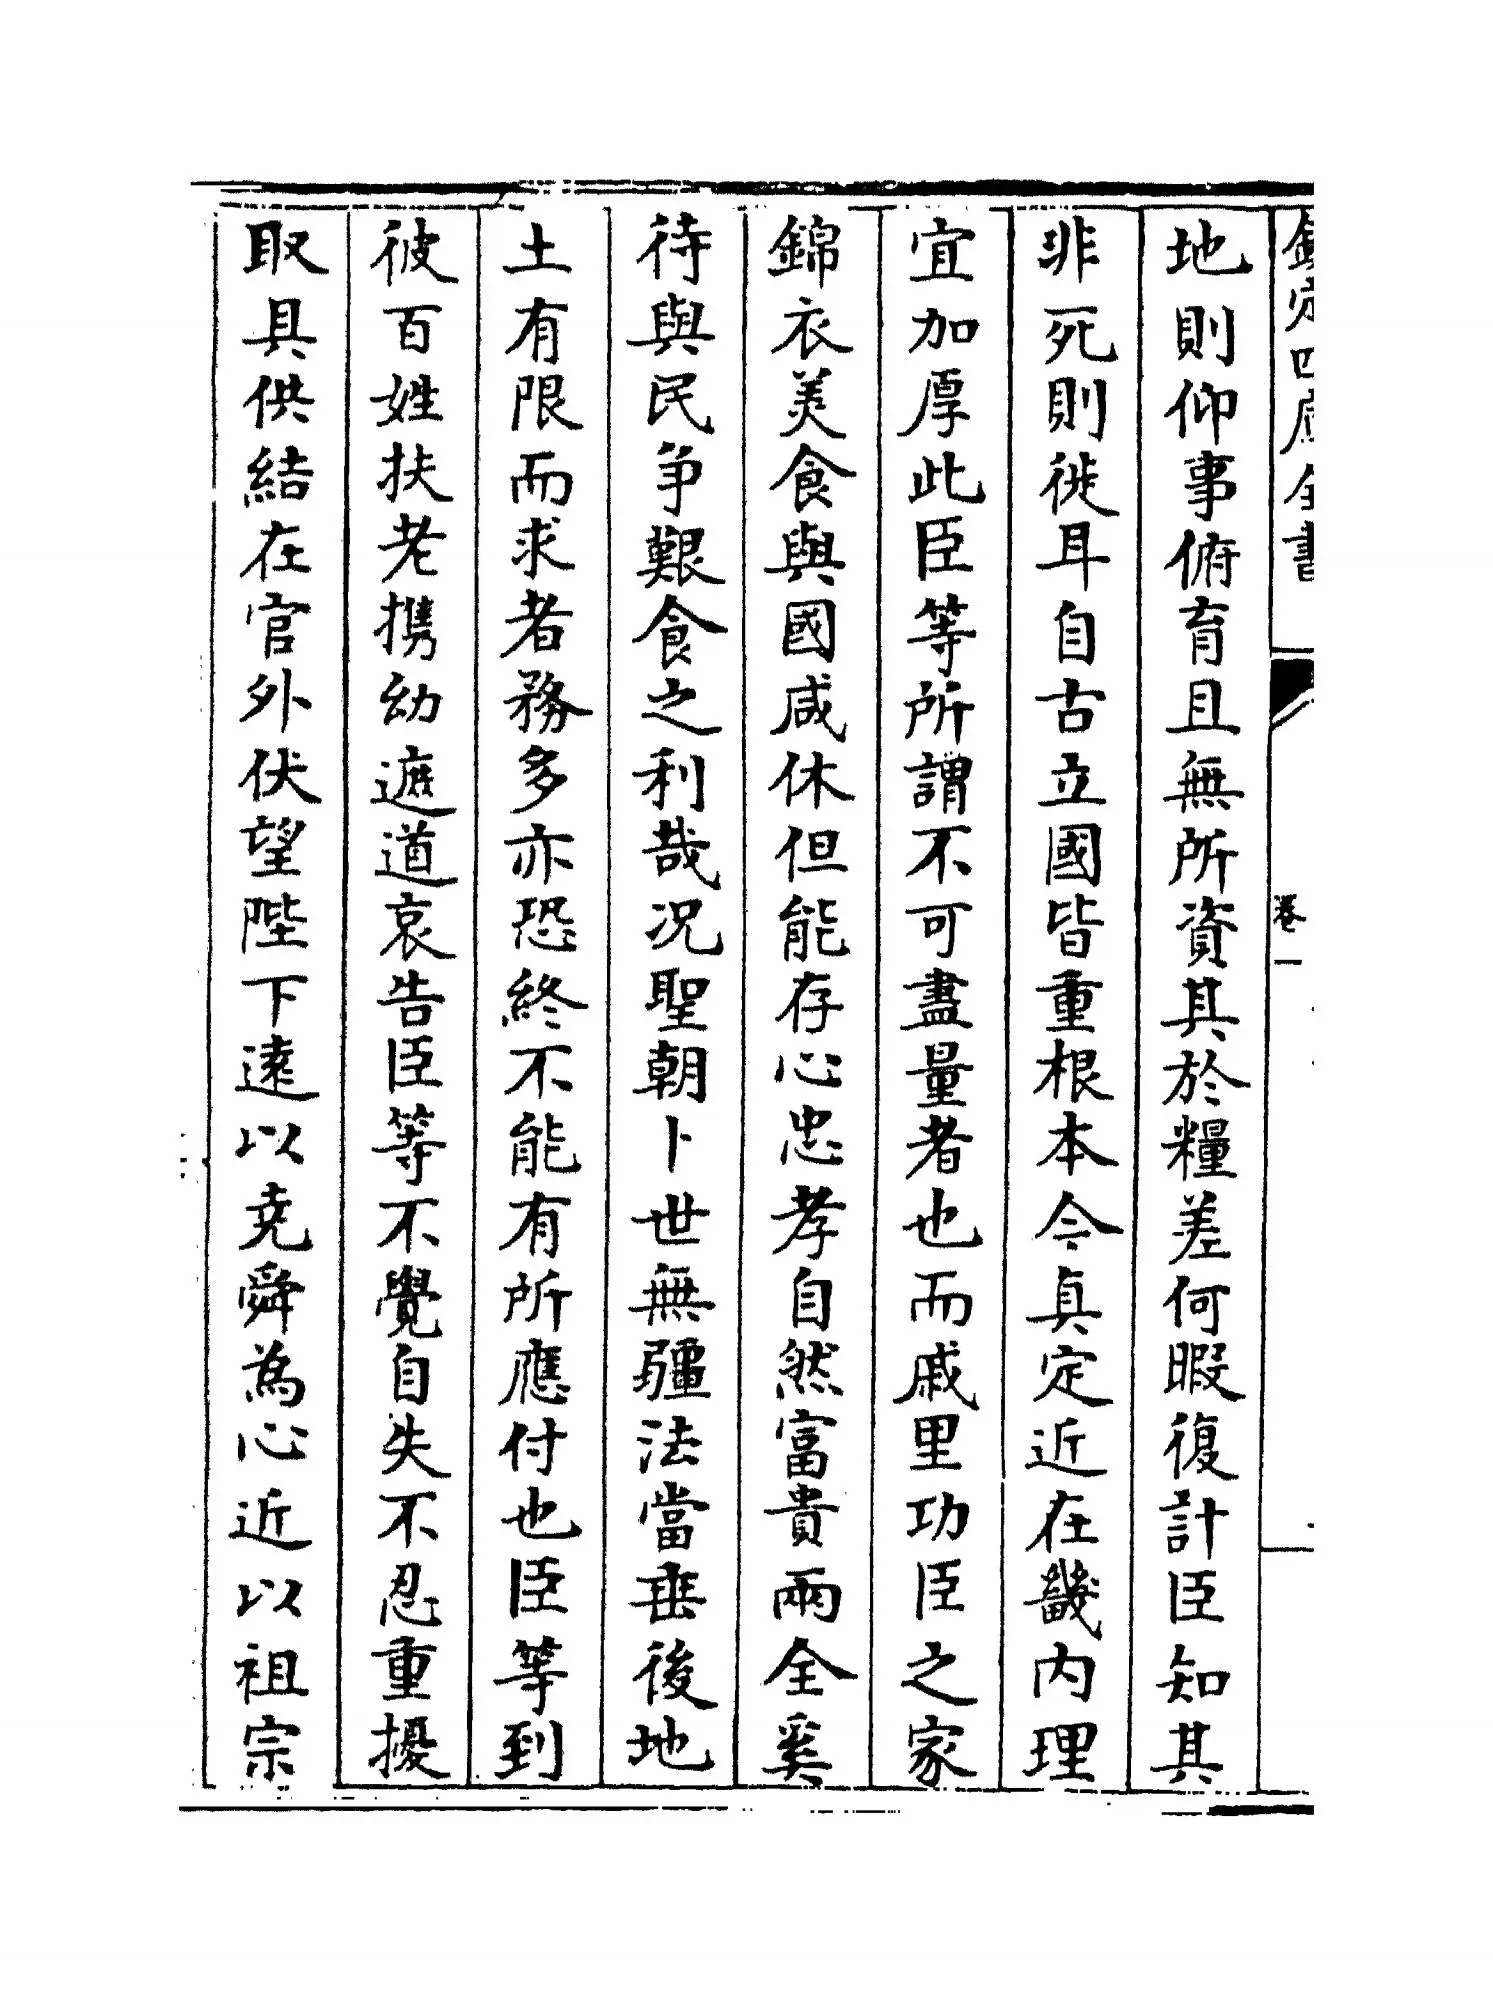 欽定四庫全書
卷一
地則仰事俯育且無所資其於糧差何暇復計臣知其
非死則徙耳自古立國皆重根本今真定近在畿内理
宜加厚此臣等所謂不可盡量者也而戚里功臣之家
錦衣美食與國咸休但能存心忠孝自然富貴兩全奚
待與民争艱食之利哉况聖朝卜世無疆法當垂後地
土有限而求者務多亦恐終不能有所應付也臣等到
彼百姓扶老携幼遮道哀告臣等不覺自失不忍重擾
取具供結在官外伏望陛下逺以堯舜為心近以祖宗